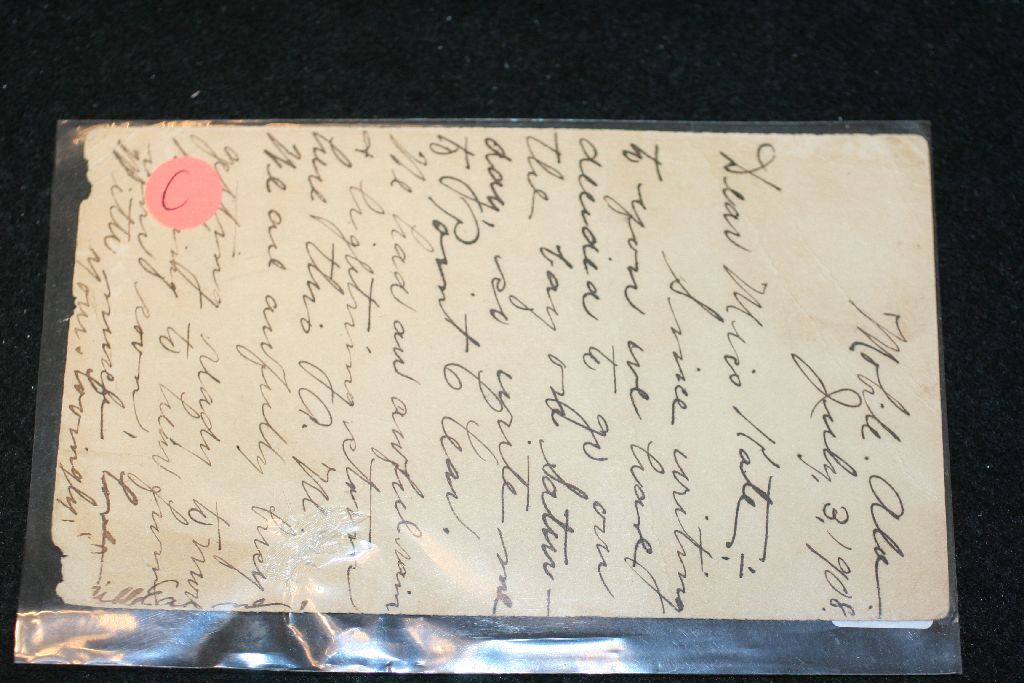 Mobile. Ala
July, 3, 1908.
Dear Miss Kate:—
Since writing
to you we have
decided to go over
the bay on Satur-
day, so write me
to Point Clear.
We had an awful rain
& lightning storm
here this A.
We are awfully busy
getting ready to move
to
soon,
Write yours
yours lovingly,
C